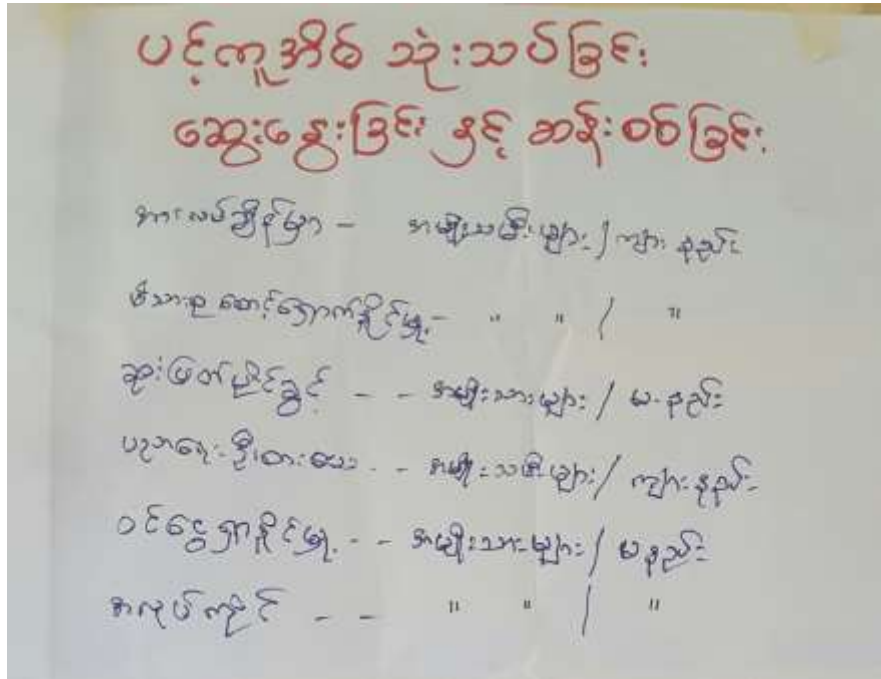 ပင့်ကူအိမ် သုံးသပ်ခြင်း
ဆွေးနွေးခြင်း နှင့် ဆန်းစစ်ခြင်း
အားလပ်ချိန်မှာ - အမျိုးသမီးများ / ကျား နည်း
မိသားစု စောင့်ရှောက်နိုင်မှု - " " / "
ဆုံးဖြတ်ပိုင်ခွင့် - - အမျိုးသားများ / မ - နည်း
ပညာရေး - ဦးစားပေး - - အမျိုးသမီးများ / ကျား နည်း
ဝင်ငွေရှာနိုင်မှု - - အမျိုးသားများ / မ နည်း
အလုပ်အကိုင် - - " " / "